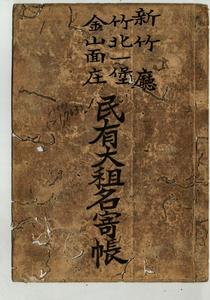 新竹廳
竹北一堡
金山面庄
民有大租名寄帳